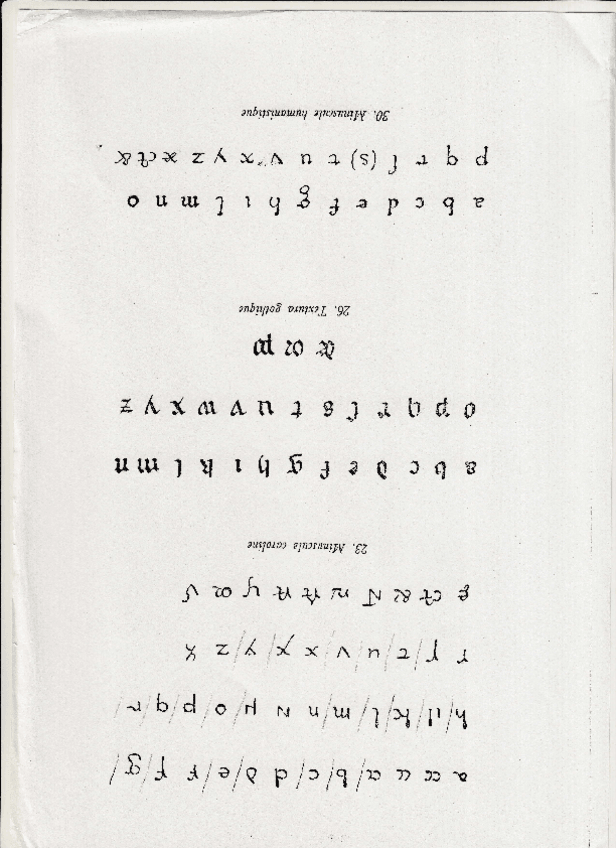 a cc u a/ b/ c/ d ∂/ e/ F f/ g/
h/ il/ k/ l/ m/ n N µ/ o/ p/ q/ r/
r ſ/ t/ u/ v x x/ y/ z/
ę ct &
23. Minuscule caroline
a b c d e f g h i k l m n
o p q r ſ s t u v w x y z
26. Textura gothique
a b c d e f g h i l m n o
p q r ſ (s) t u v x y z æ ct &
30. Minuscule humanistique